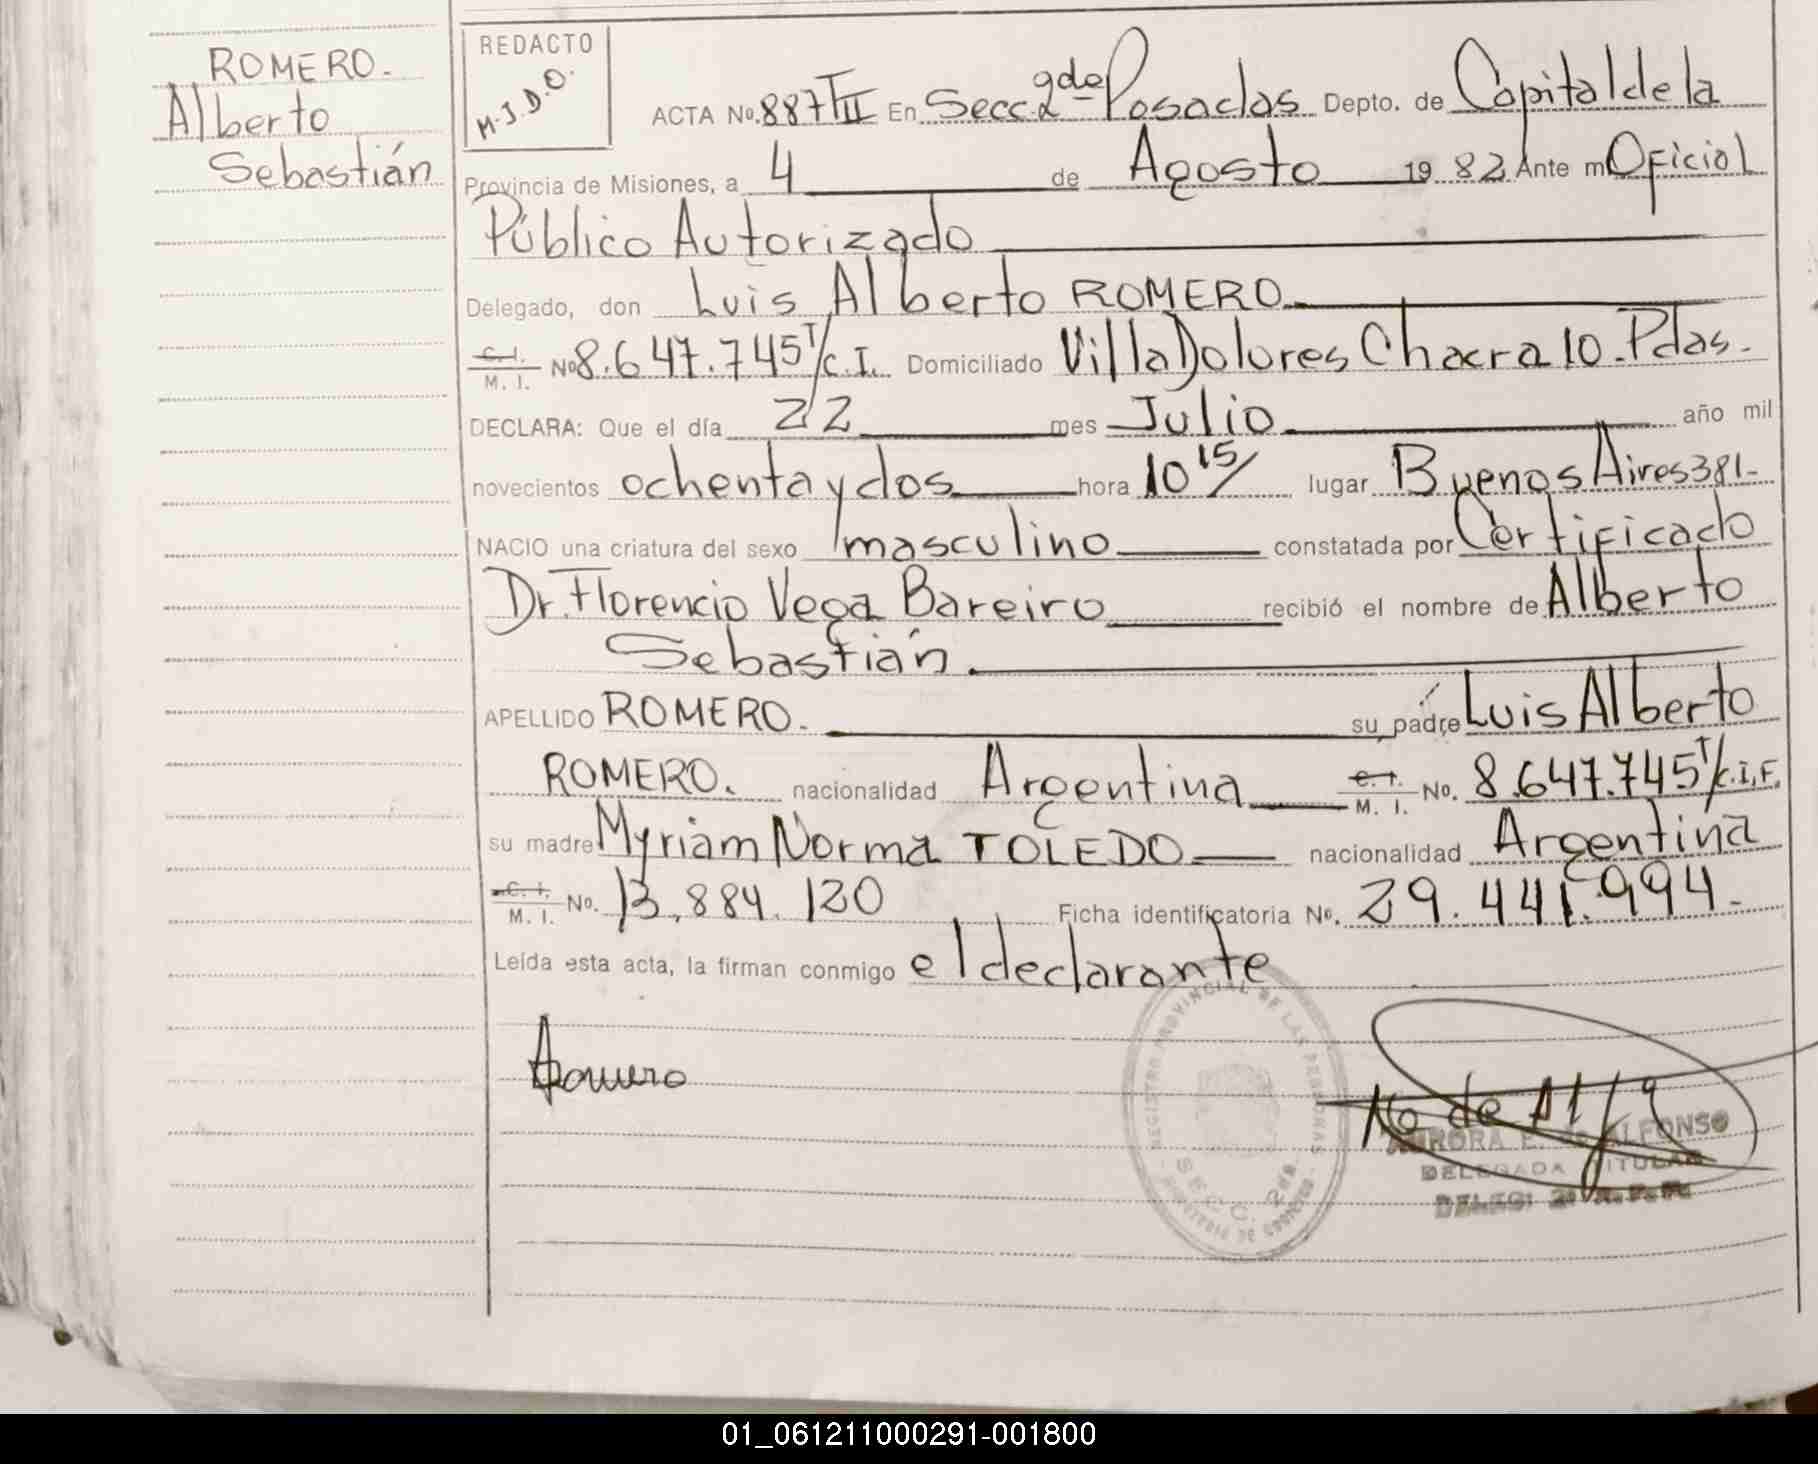 ROMERO.
Alberto
Sebastián
REDACTO
M.J.D.O.
ACTA No. 887 TII En Secc. 2da Posadas Depto. de Capital de la
Provincia de Misiones, a 4 de Agosto 1982 Ante mí Oficial
Público Autorizado
Delegado, don Luis Alberto ROMERO
C.I. M.I. No 8.647.745 T/C.I. Domiciliado Villa Dolores Chacra 10. Pdas.
DECLARA: Que el día 22 mes Julio año mil
novecientos ochenta y dos hora 10 15/ lugar Buenos Aires 381-
NACIO una criatura del sexo masculino constatada por Certificado
Dr. Florencio Vega Bareiro recibió el nombre de Alberto
Sebastián.
APELLIDO ROMERO. su padre Luis Alberto
ROMERO. nacionalidad Argentina C.I. M.I. No. 8.647.745 T/C.I.F.
su madre Myriam Norma TOLEDO nacionalidad Argentina
C.I. M.I. No. 13.884.120 Ficha identificatoria No. 29.441.994-
Leída esta acta, la firman conmigo el declarante
REGISTRO PROVINCIAL DE LAS PERSONAS
SECC. 2da
ARomero
AURORA E. de ALFONSO
DELEGADA TITULAR
01_061211000291-001800